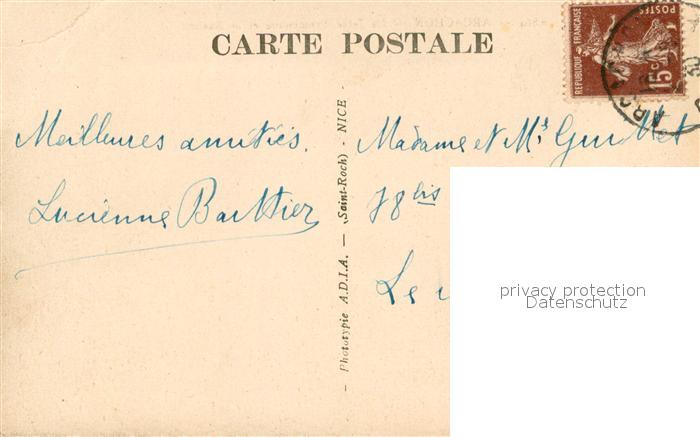 CARTE POSTALE
REPUBLIQUE FRANÇAISE
POSTES
15c
ARC
Meilleures amitiés.
Lucienne Barthier
Phototypie A.D.I.A. — (Saint-Roch) - NICE -
Madame et Mr Guillet
78 bis
Le
privacy protection
Datenschutz